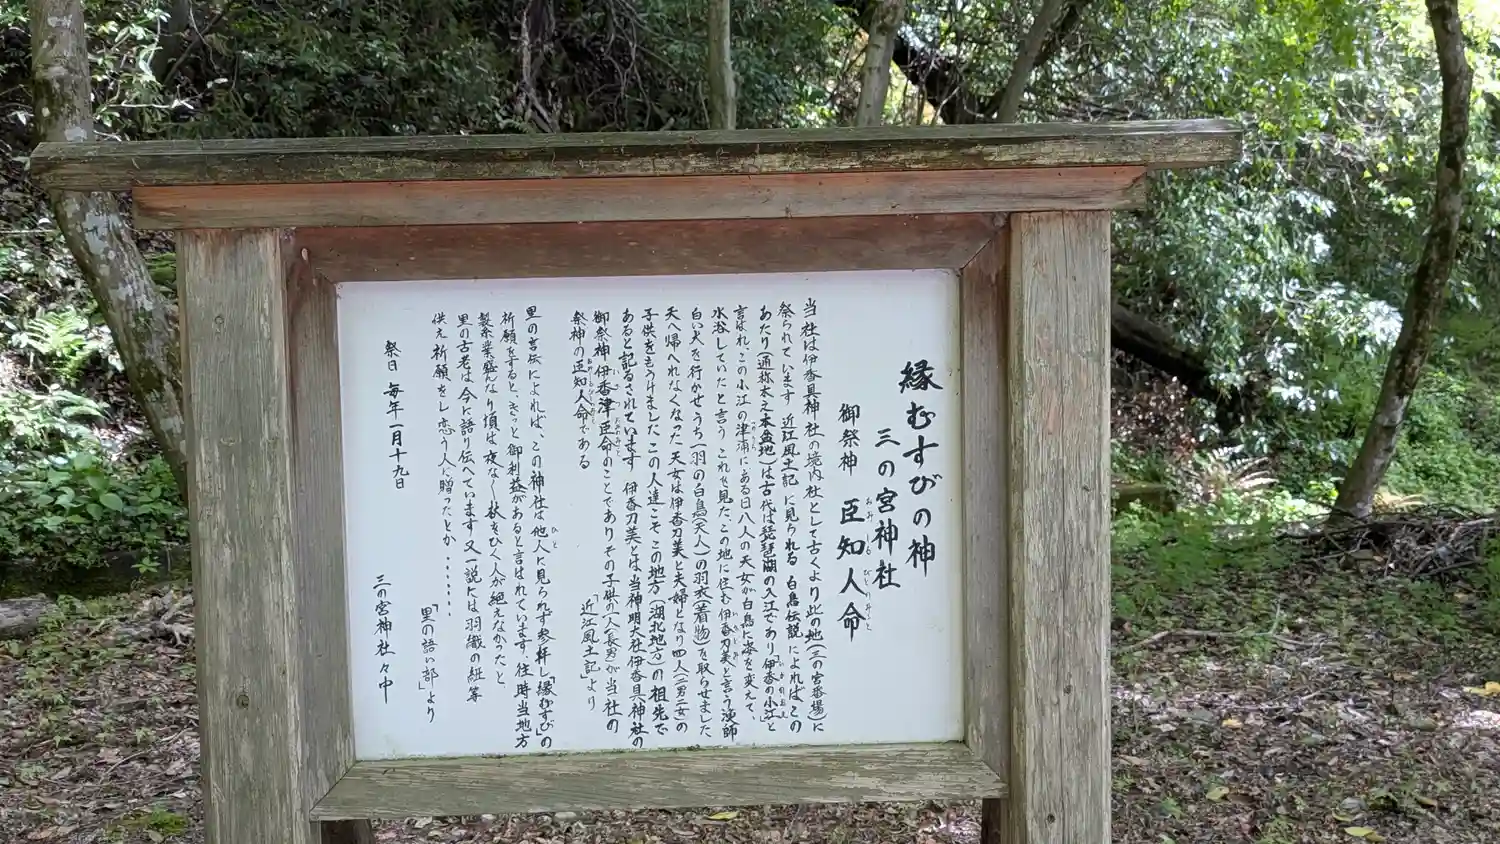 縁むすびの神
三の宮神社
御祭神 臣知人命
おみしるひとのみこと
当社は伊香具神社の境内社として古くより此の地(三の宮番場)に
祭られています 近江風土記 に見られる 白鳥伝説 によれば この
あたり(通称木之本盆地)は古代は琵琶湖の入江であり「伊香の小江」と
言はれ、この小江の津浦にある日八人の天女が白鳥に姿を変えて、
水浴していたと言う これを見た、この地に住む伊香刀美と言う漁師
白い犬を行かせ うち一羽の白鳥(天人)の羽衣(着物)を取らせました
天へ帰へれなくなった天女は伊香刀美と夫婦となり四人(二男二女)の
子供をもうけました この人達こそ この地方(湖北地方)の祖先で
あると記るされています 伊香刀美とは、当神明大社伊香具神社の
御祭神 伊香津臣命のことでありその子供の一人(長男)が当社の
祭神の臣知人命である 「近江風土記」より
里の言伝によれば、この神社は他人に見られず参拝し「縁むすび」の
祈願をすると、きっと御利益があると言はれています。往時当地方
製糸業盛んなり頃は夜な〱杖をひく人が絶えなかった、と
里の古老は今に語り伝へています 又一説には羽織の紐等
供え祈願をし恋う人に贈ったとか・・・・・・・
「里の語い部」より
祭日 毎年一月十九日
三の宮神社々中